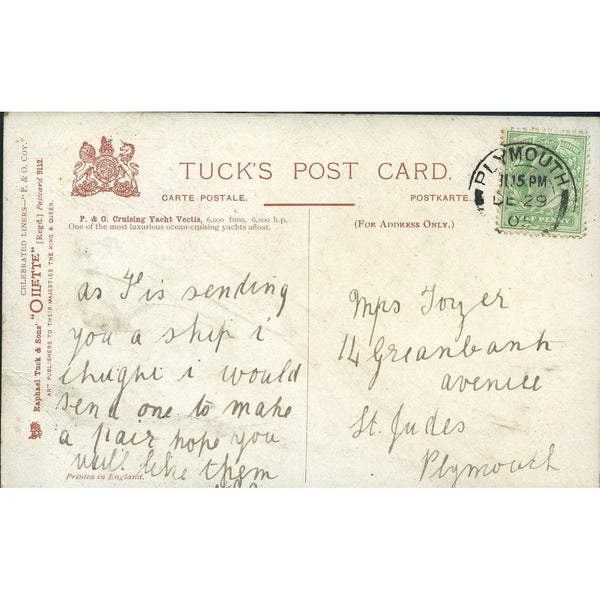 CELEBRATED LINERS—"P. & O. COY."
Raphael Tuck & Sons' "OILETTE" [Regd.] Postcard 9112.
ART PUBLISHERS TO THEIR MAJESTIES THE KING & QUEEN.
TUCK'S POST CARD.
CARTE POSTALE.
POSTKARTE.
P. & O. Cruising Yacht Vectis, 6,000 tons, 6,000 h.p.
One of the most luxurious ocean-cruising yachts afloat.
(FOR ADDRESS ONLY.)
PLYMOUTH
11.15 PM
DE 29
05
HALF PENNY
as F is sending
you a ship i
thught i would
send one to make
a pair hope you
will like them
Printed in England.
Mrs Toyer
14 Greanbank
avenice
St. Judes
Plymouth